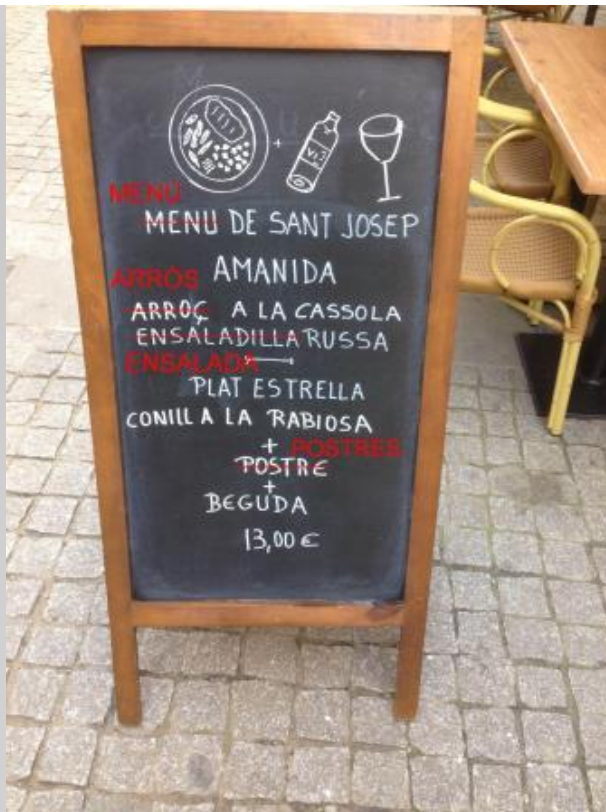 VI
MENÚ
MENU DE SANT JOSEP
AMANIDA
ARRÒS
ARROÇ A LA CASSOLA
ENSALADILLA RUSSA
ENSALADA
PLAT ESTRELLA
CONILL A LA RABIOSA
+ POSTRES
POSTRE
+
BEGUDA
13,00 €